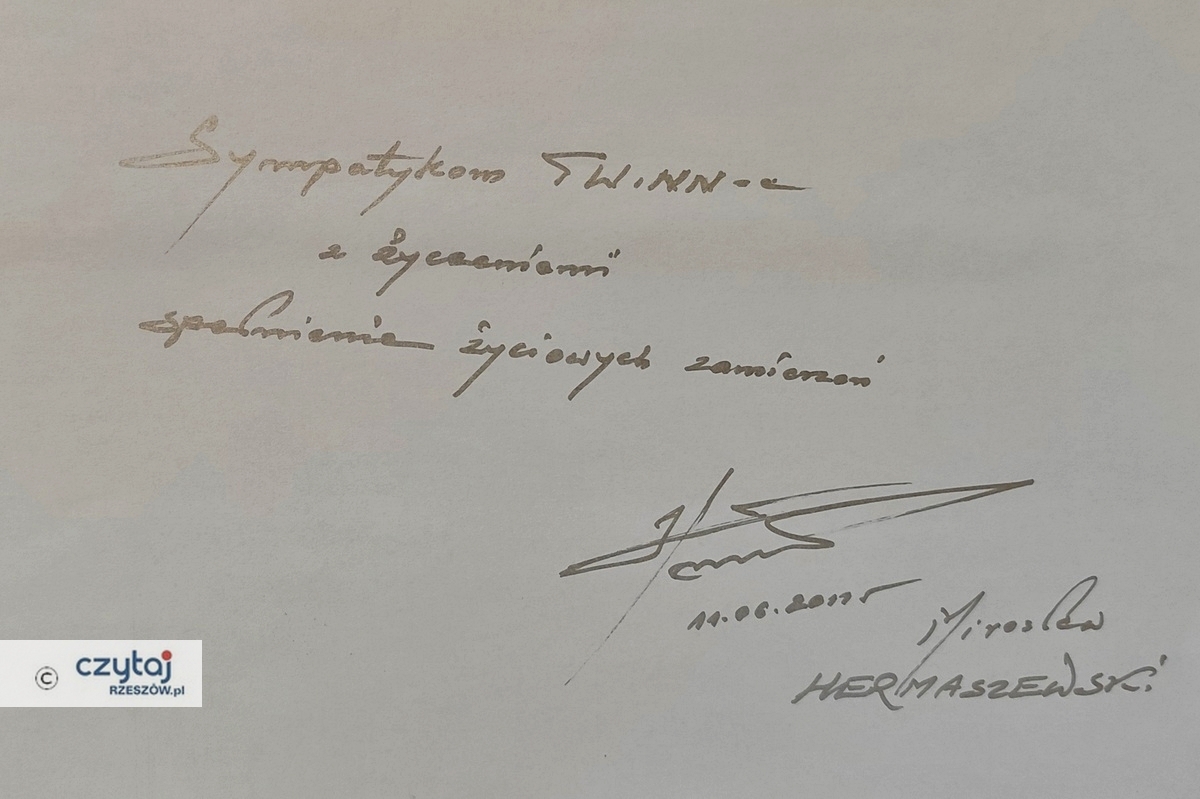 Sympatykom TWINN-a
z życzeniami
spełnienia życiowych zamierzeń
11.06.2011r
Mirosław
HERMASZEWSKI
© czytaj
RZESZÓW.pl